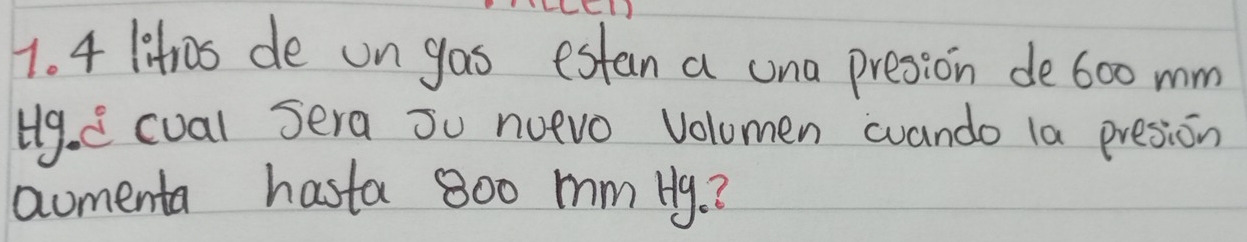 1. 4 litros de un gas estan a una presión de 600 mm
Hg. ¿ cual sera su nuevo volumen cuando la presión
aumenta hasta 800 mm Hg.?